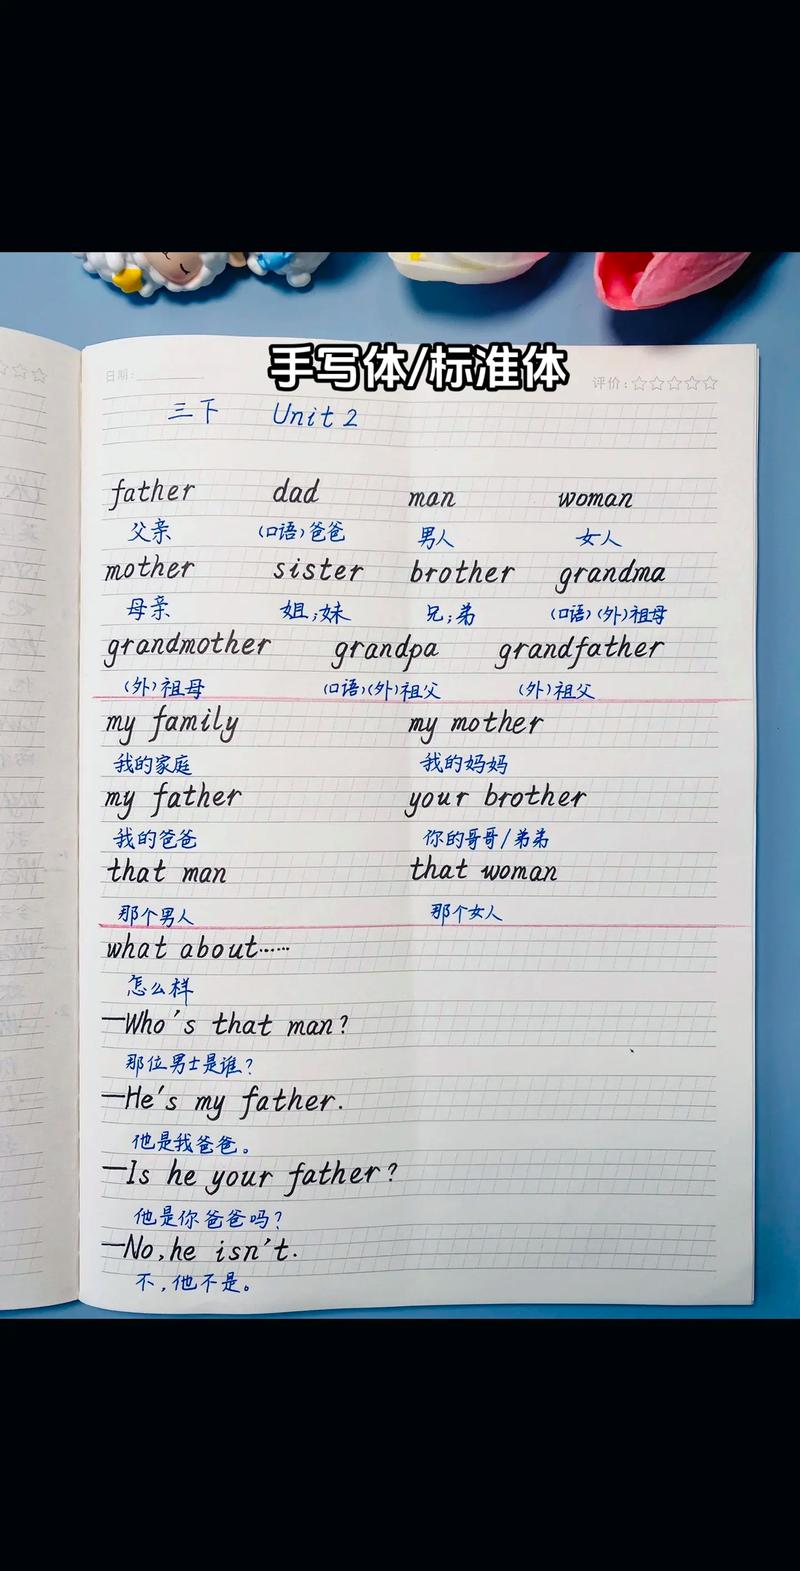 手写体/标准体
日期:
评价:☆☆☆☆☆
三下 Unit 2
father dad man woman
父亲 (口语)爸爸 男人 女人
mother sister brother grandma
母亲 姐;妹 兄;弟 (口语)(外)祖母
grandmother grandpa grandfather
(外)祖母 (口语)(外)祖父 (外)祖父
my family my mother
我的家庭 我的妈妈
my father your brother
我的爸爸 你的哥哥/弟弟
that man that woman
那个男人 那个女人
what about……
怎么样
—Who's that man?
那位男士是谁?
—He's my father.
他是我爸爸。
—Is he your father?
他是你爸爸吗?
—No, he isn't.
不,他不是。